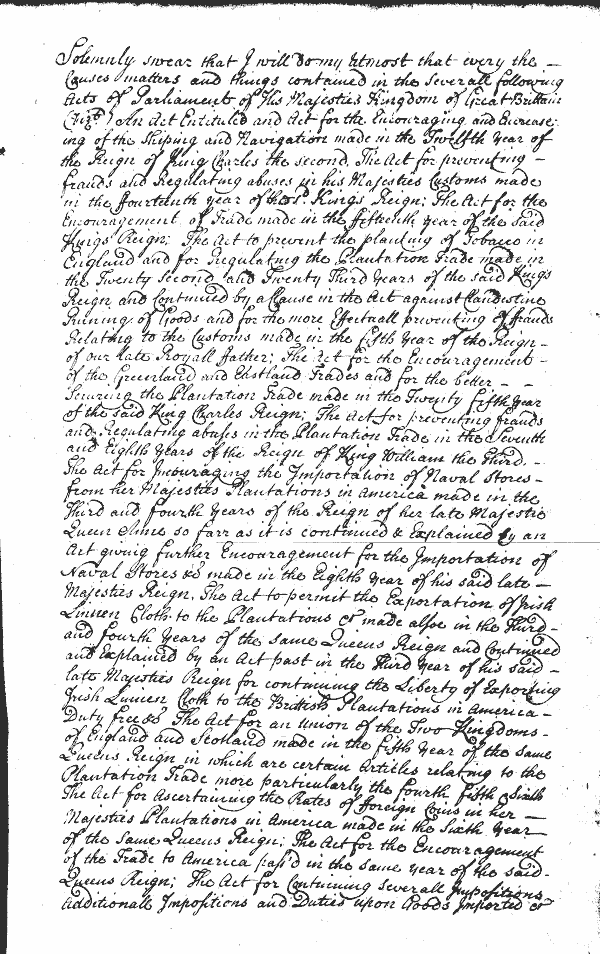 Solemnly swear that I will do my utmost that every the —
Causes matters and things contained in the severall following
Acts of Parliament of His Majesties Kingdom of Great Brittain
(Vizt.) An Act Entituled and Act for the Encouraging and Encrease:
ing of the Shiping and Navigation made in the Twelfth Year of
the Reign of King Charles the second, The Act for preventing —
frauds and Regulating abuses in his Majesties Customs made
in the fourteenth year of the sd. Kings Reign; The Act for the
Encouragement of Trade made in the fifteenth Year of the said
Kings Reign; The Act to prevent the planting of Tobacco in
England and for Regulating the Plantation Trade made in
the Twenty Second and Twenty Third Years of the said Kings
Reign and Continued by a Clause in the Act against Clandestine
Runing of Goods and for the more Effectuall preventing of frauds
Relating to the Customs made in the fifth Year of the Reign -
of our late Royall father; The Act for the Encouragement -
of the Greenland and Eastland Trades and for the better - -
Securing the Plantation Trade made in the Twenty fifth Year
of the said King Charles Reign; The Act for preventing frauds
and Regulating abuses in the Plantation Trade in the Seventh
and Eighth Years of the Reign of King William the Third. -
The Act for Incouraging the Importation of Naval Stores -
from her Majesties Plantations in America made in the
Third and fourth Years of the Reign of her late Majestie
Queen Anne so farr as it is continued & Explained by an
Act giving further Encouragement for the Importation of
Naval Stores &c made in the Eighth Year of his said late —
Majesties Reign, The Act to permit the Exportation of Irish
Linnen Cloth to the Plantations &c made also in the Third -
and fourth Years of the same Queens Reign and Continued
and Explained by an Act past in the Third Year of his said -
late Majesties Reign for continuing the Liberty of Exporting
Irish Linnen Cloth to the British Plantations in America -
Duty free &c The Act for an Union of the Two Kingdoms -
of England and Scotland made in the fifth Year of the same
Queens Reign in which are certain Articles relating to the
Plantation Trade more particularly the fourth fifth & Sixth
The Act for Ascertaining the Rates of Foreign Coins in her —
Majesties Plantations in America made in the Sixth Year
of the same Queens Reign; The Act for the Encouragement
of the Trade to America pass'd in the same year of the said -
Queens Reign; The Act for Continuing severall Impositions
Additionall Impositions and Duties upon Goods Imported &c